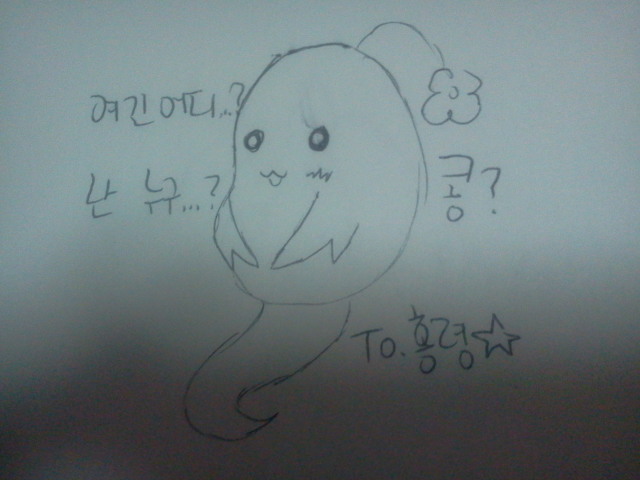 여긴 어디...?
난 뉴구...?
콩?
To.홍령☆